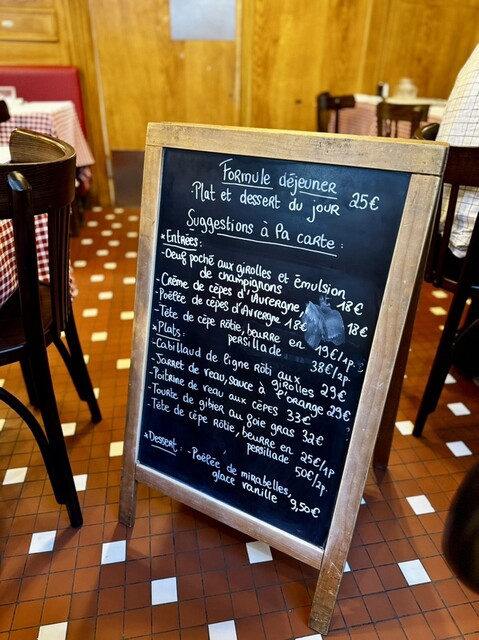 Formule déjeuner
Plat et dessert du jour 25€
Suggestions à la carte :
*Entrées :
-Oeuf poché aux girolles et émulsion
de champignons 18€
-Crème de cèpes d'Auvergne, 18€
-Poêlée de cèpes d'Auvergne 18€
-Tête de cèpe rôtie, beurre en 19€/1p.
persillade 38€/2p.
*Plats :
-Cabillaud de ligne rôti aux
girolles 29€
-Jarret de veau, sauce à l'orange 29€
-Poitrine de veau aux cèpes 33€
-Tourte de gibier au foie gras 32€
-Tête de cèpe rôtie, beurre en 25€/1p
persillade 50€/2p.
*Dessert : -Poêlée de mirabelles,
glace vanille 9,50€